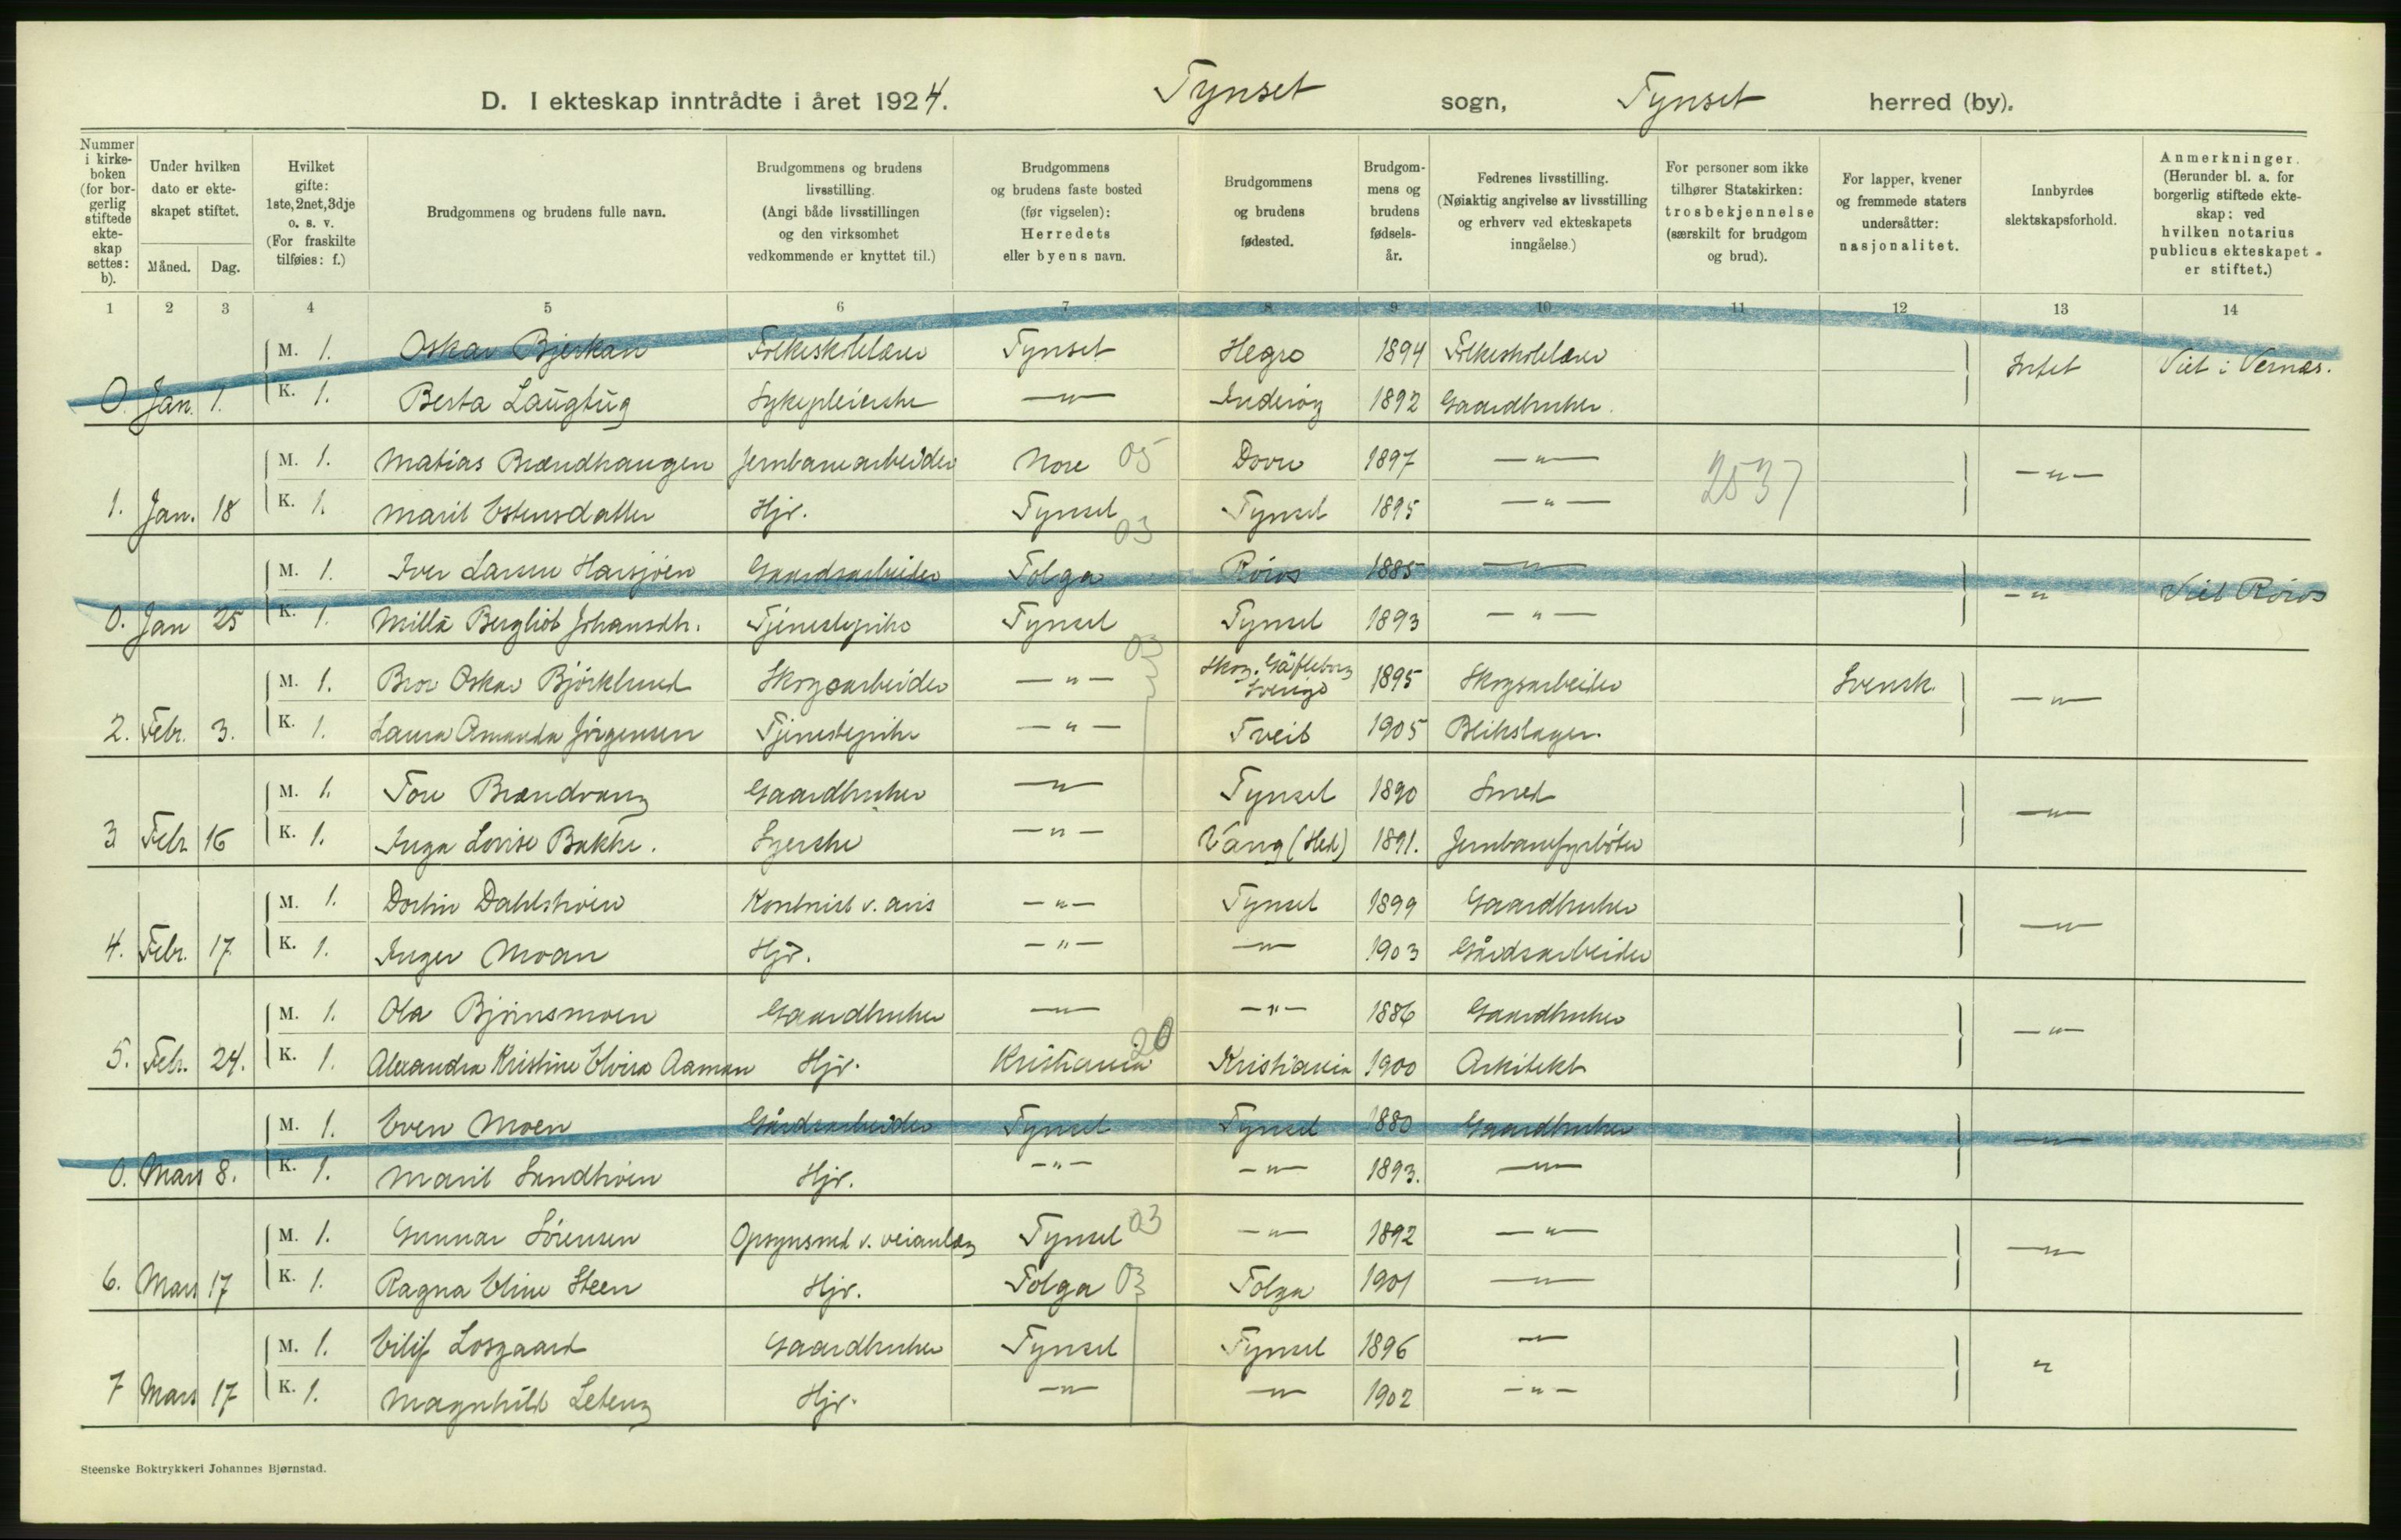 D. I ekteskap inntrådte i året 1924. Tynset sogn, Tynset herred (by).
Nummer i kirke- boken (for bor- gerlig stiftede ekte- skap settes: b).
Under hvilken dato er ekte- skapet stiftet.
Måned. Dag.
Hvilket gifte: 1ste, 2net, 3dje o. s. v. (For fraskilte tilføies: f.)
Brudgommens og brudens fulle navn.
Brudgommens og brudens livsstilling. (Angi både livsstillingen og den virksomhet vedkommende er knyttet til.)
Brudgommens og brudens faste bosted (før vigselen): Herredets eller byens navn.
Brudgommens og brudens fødested.
Brudgom- mens og brudens fødsels- år.
Fedrenes livsstilling. (Nøiaktig angivelse av livsstilling og erhverv ved ekteskapets inngåelse.)
For personer som ikke tilhører Statskirken: trosbekjennelse (særskilt for brudgom og brud).
For lapper, kvener og fremmede staters undersåtter: nasjonalitet.
Innbyrdes slektskapsforhold.
Anmerkninger. (Herunder bl. a. for borgerlig stiftede ekte- skap: ved hvilken notarius publicus ekteskapet er stiftet.)
1 2 3 4 5 6 7 8 9 10 11 12 13 14
M. 1. Oskar Bjerkan Folkeskolelærer Tynset Hegra 1894 Folkeskolelærer Intet Viet i Vernes.
0. Jan. 1. K. 1. Berta Laugtug Sykepleierske —"— Inderøy 1892 Gaardbruker.
M. 1. Matias Brændhaugen Jernbanearbeider Nore 05 Dovre 1897 —"— 2537 —"—
1. Jan. 18 K. 1. Marit Estensdatter Hjr. Tynset 03 Tynset 1895 —"—
M. 1. Iver Larsen Harsjøen Gaardsarbeider Tolga Røros 1885 —"— —"— Viet Røros
0. Jan 25 K. 1. Milla Bergliot Johansdtr. Tjenestepike Tynset Tynset 1893 —"—
M. 1. Bror Oskar Björklund Skogsarbeider —"— 03 Skog. Gäfleborg Sverige 1895 Skogsarbeider Svensk. —"—
2. Febr. 3. K. 1. Laura Amanda Jörgensen Tjenestepike —"— Tveit 1905 Blikslager.
M. 1. Tore Brændvang Gaardbruker —"— Tynset 1890 Smed —"—
3 Febr 16 K. 1. Inga Lovise Bakke. Syerske —"— Vang (Hed) 1891. Jernbanefyrbøter
M. 1. Dortin Dahlstrøen Kontorist v. avis —"— Tynset 1899 Gaardbruker —"—
4. Febr. 17 K. 1. Inger Moan Hjr. —"— —"— 1903 Gårdsarbeider
M. 1. Ola Bjørnsmoen Gaardbruker —"— —"— 1886 Gaardbruker —"—
5. Febr. 24. K. 1. Alexandra Kristine Elvira Aaman Hjr. Kristiania 20 Kristiania 1900 Arkitekt
M. 1. Even Moen Gårdsarbeider Tynset Tynset 1880 Gaardbruker —"—
0. Mars 8. K. 1. Marit Sandtrøen Hjr. —"— —"— 1893. —"—
M. 1. Gunnar Sörensen Opsynsmd v. veianlæg Tynset 03 —"— 1892 —"— —"—
6. Mars 17 K. 1. Ragna Eline Steen Hjr. Tolga 03 Tolga 1901 —"—
M. 1. Eilif Losgaard Gaardbruker Tynset Tynset 1896 —"— "
7 Mars 17 K. 1. Magnhild Leteng Hjr. —"— —"— 1902 —"—
Steenske Boktrykkeri Johannes Bjørnstad.